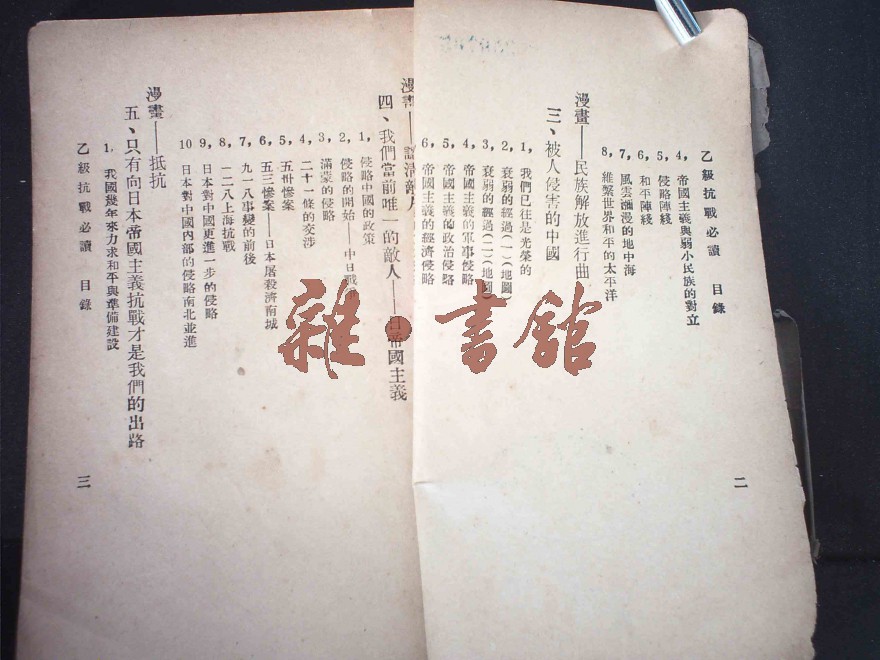 乙級抗戰必讀　目錄
二
4，帝國主義與弱小民族的對立
5，侵略陣綫
6，和平陣綫
7，風雲瀰漫的地中海
8，維繫世界和平的太平洋
漫畫——民族解放進行曲
三、被人侵害的中國
1，我們已往是光榮的
2，衰弱的經過（一）（地圖）
3，衰弱的經過（二）（地圖）
4，帝國主義的軍事侵略
5，帝國主義的政治侵略
6，帝國主義的經濟侵略
漫畫——認清敵人
四、我們當前唯一的敵人——日帝國主義
1，侵略中國的政策
2，侵略的開始——中日戰
3，滿蒙的侵略
4，二十一條的交涉
5，五卅慘案
6，五三慘案——日本屠殺濟南城
7，九一八事變的前後
8，一二八上海抗戰
9，日本對中國更進一步的侵略
10 日本對中國內部的侵略南北並進
漫畫——抵抗
五、只有向日本帝國主義抗戰才是我們的出路
1，我國幾年來力求和平與準備建設
乙級抗戰必讀　目錄
三
雜·書館